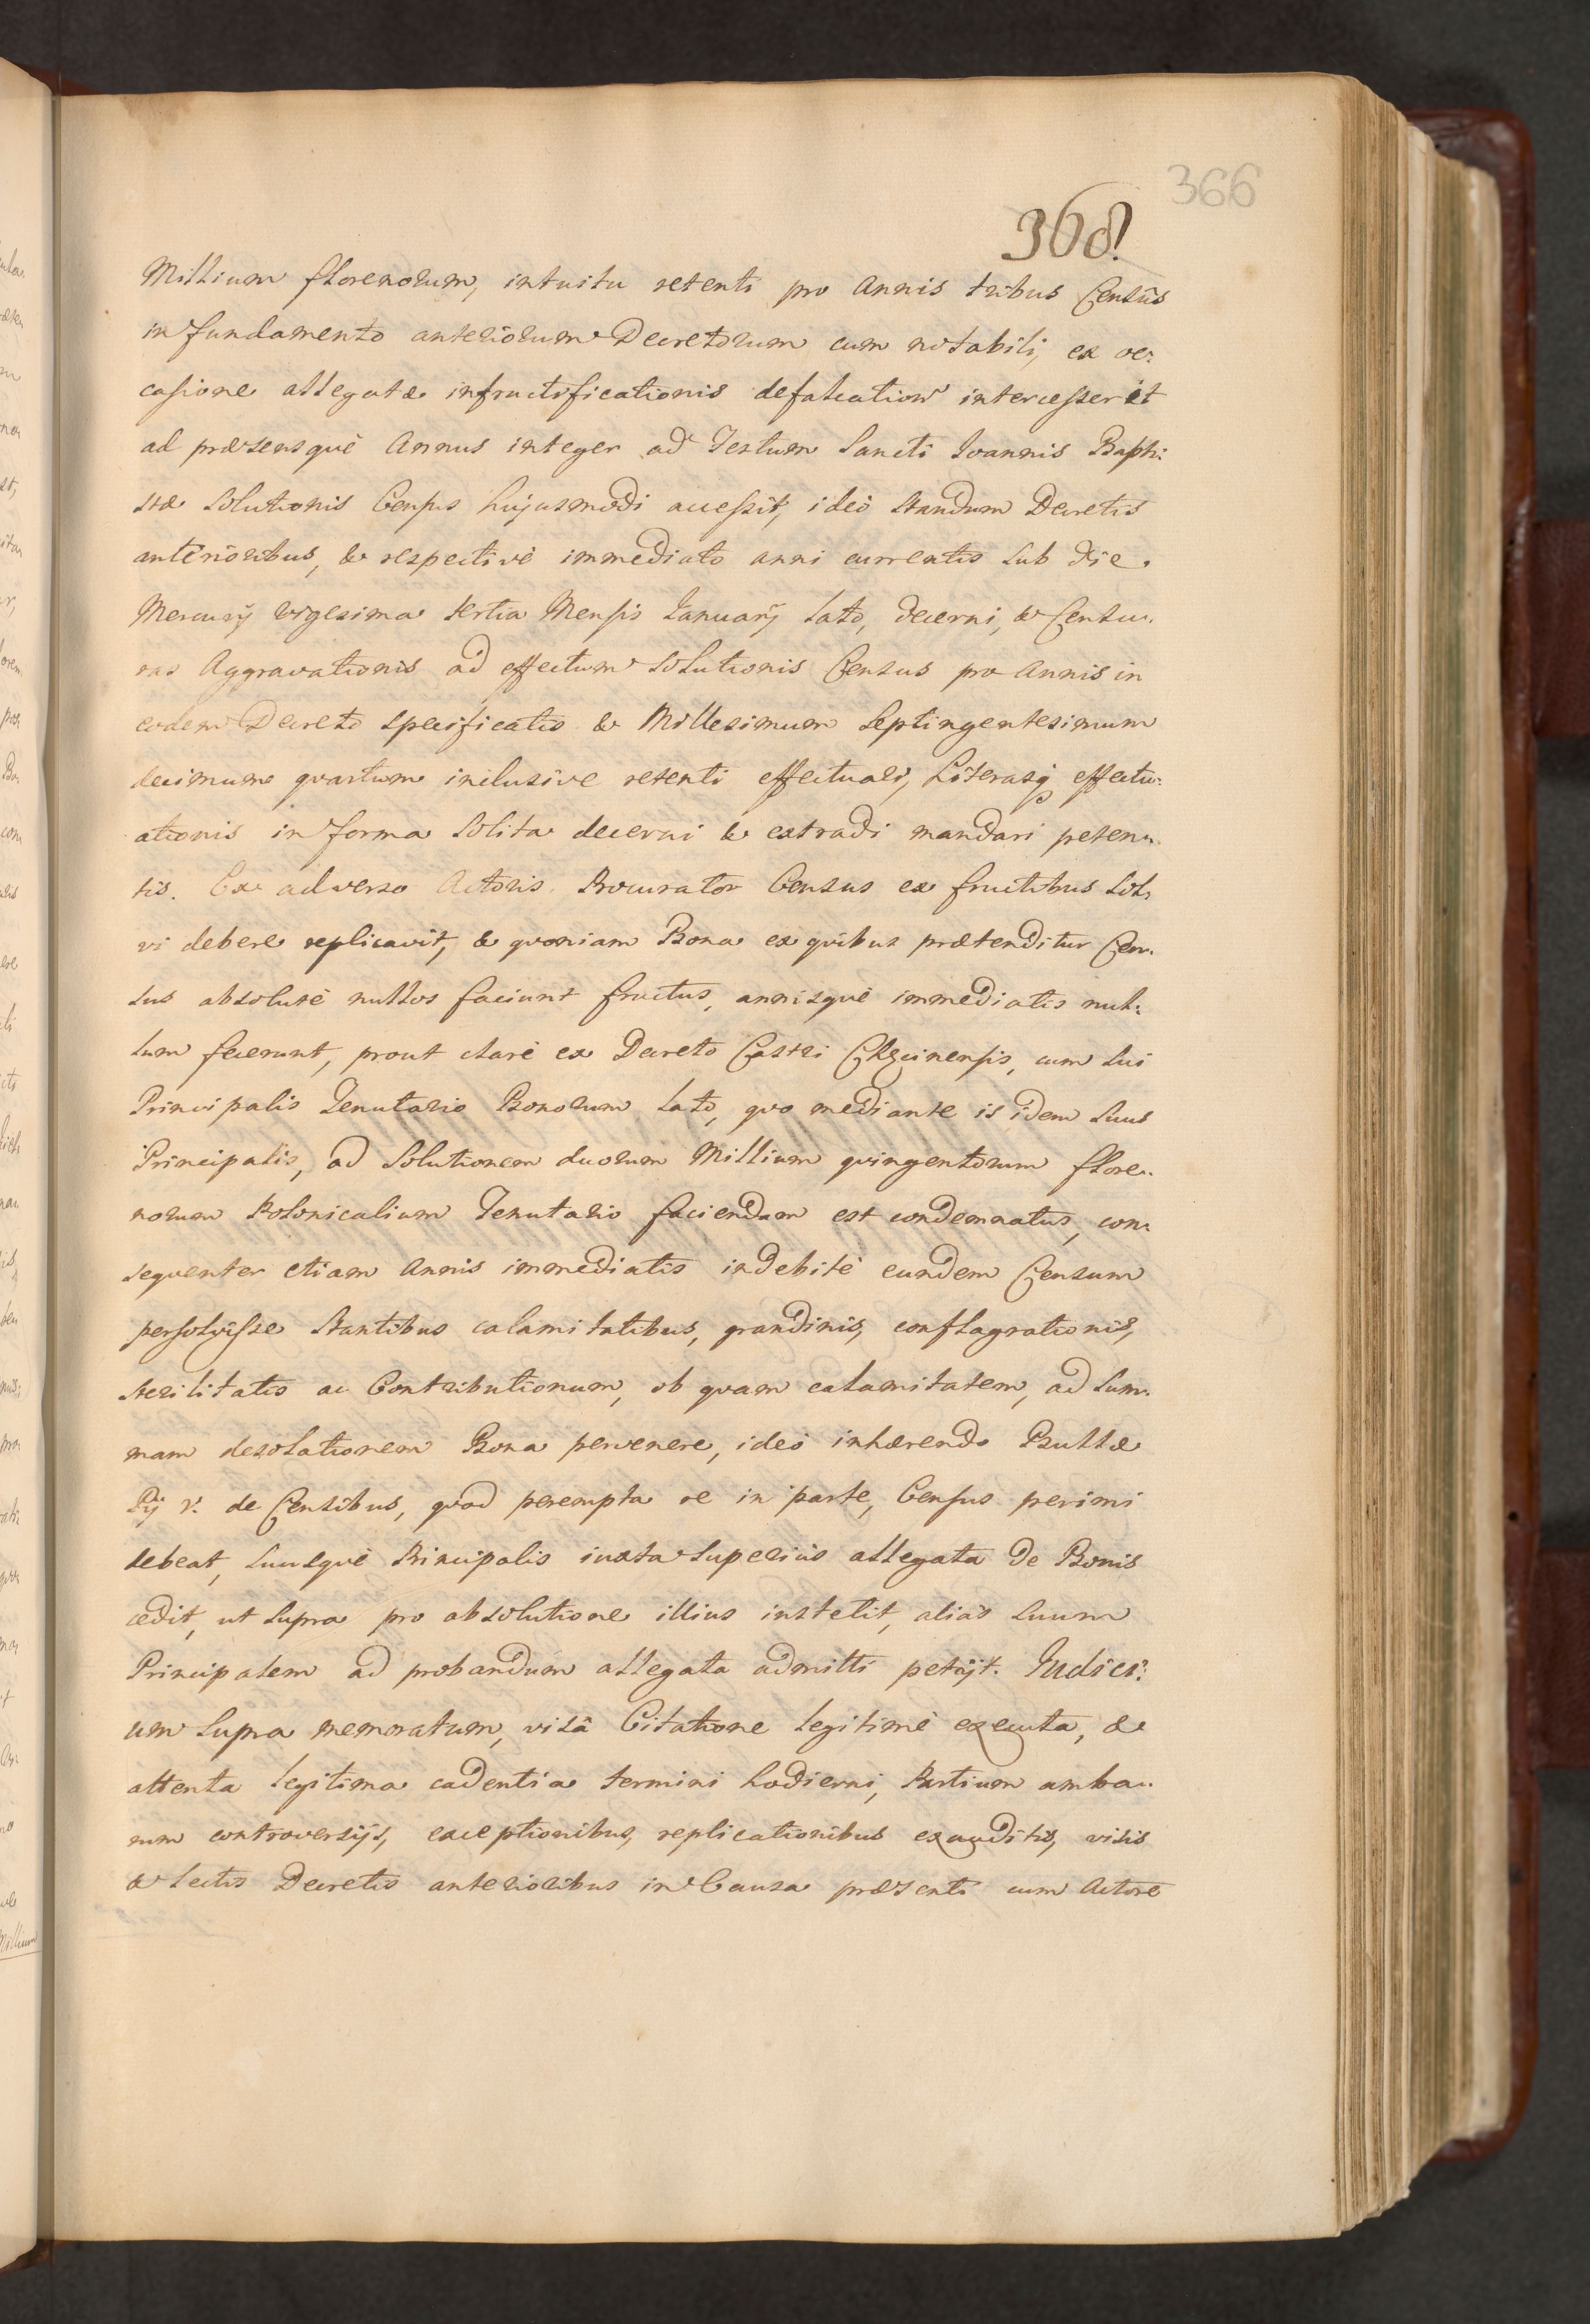 366
368.
Millium florenorum, intuitu retenti pro Annis tribus Censûs
in fundamento anteriorum Decretorum cum notabili, ex oc:
casione allegatæ infructificationis defalcation intercesserit
ad præsensquè Annus integer ad Festum Sancti Joannis Bapti:
stæ Solutionis Census hujusmodi accessit, ideò standum Decretis
anterioribus, & respectivè immediato anni currentis sub die
Mercurij vigesima tertia Mensis Januarij lato, decerni, & Censu:
ras Aggravationis ad effectum solutionis Census pro Annis in
eodem Decreto specificatis & Millesimum Septingentesimum
decimum quartum inclusive retenti effectuari, Literasq effectu:
ationis in forma solita decerni & extradi mandari peten:
tis. Ex adverso Actoris Procurator Census ex fructibus sol:
vi debere replicavit, & quoniam Bona ex quibus prætenditur Cen:
sus absolutè nullos faciunt fructus, annisquè immediatis nul:
lum fecerunt, prout clarè ex Decreto Castri Chęcinensis, cum sui
Principalis Tenutario Bonorum lato, quo mediante is idem suus
Principalis, ad Solutionem duorum Millium quingentorum flore:
norum Polonicalium Tenutario faciendam est condemnatus, con:
sequenter etiam Annis immediatis indebitè eundem Censum
persolvisse stantibus calamitatibus, grandinis, conflagrationis,
sterilitatis ac Contributionum, ob quam calamitatem, ad sum:
mam desolationem Bona pervenere, ideò inhærendo Bullæ
Pij V. de Censibus, quod perempta re in parte, Census perimi
debeat, suusquè Principalis iuxta superius allegata de Bonis
cedit, ut supra pro absolutione illius institit, aliàs suum
Principalem ad probandum allegata admitti petijt. Judici:
um supra memoratum, visâ Citatione legitimè executa, &
attenta legitima cadentia termini hodierni, Partium amba:
rum controversijs, exceptionibus, replicationibus exauditis, visis
& lectis Decretis anterioribus in Causa præsenti cum Actore